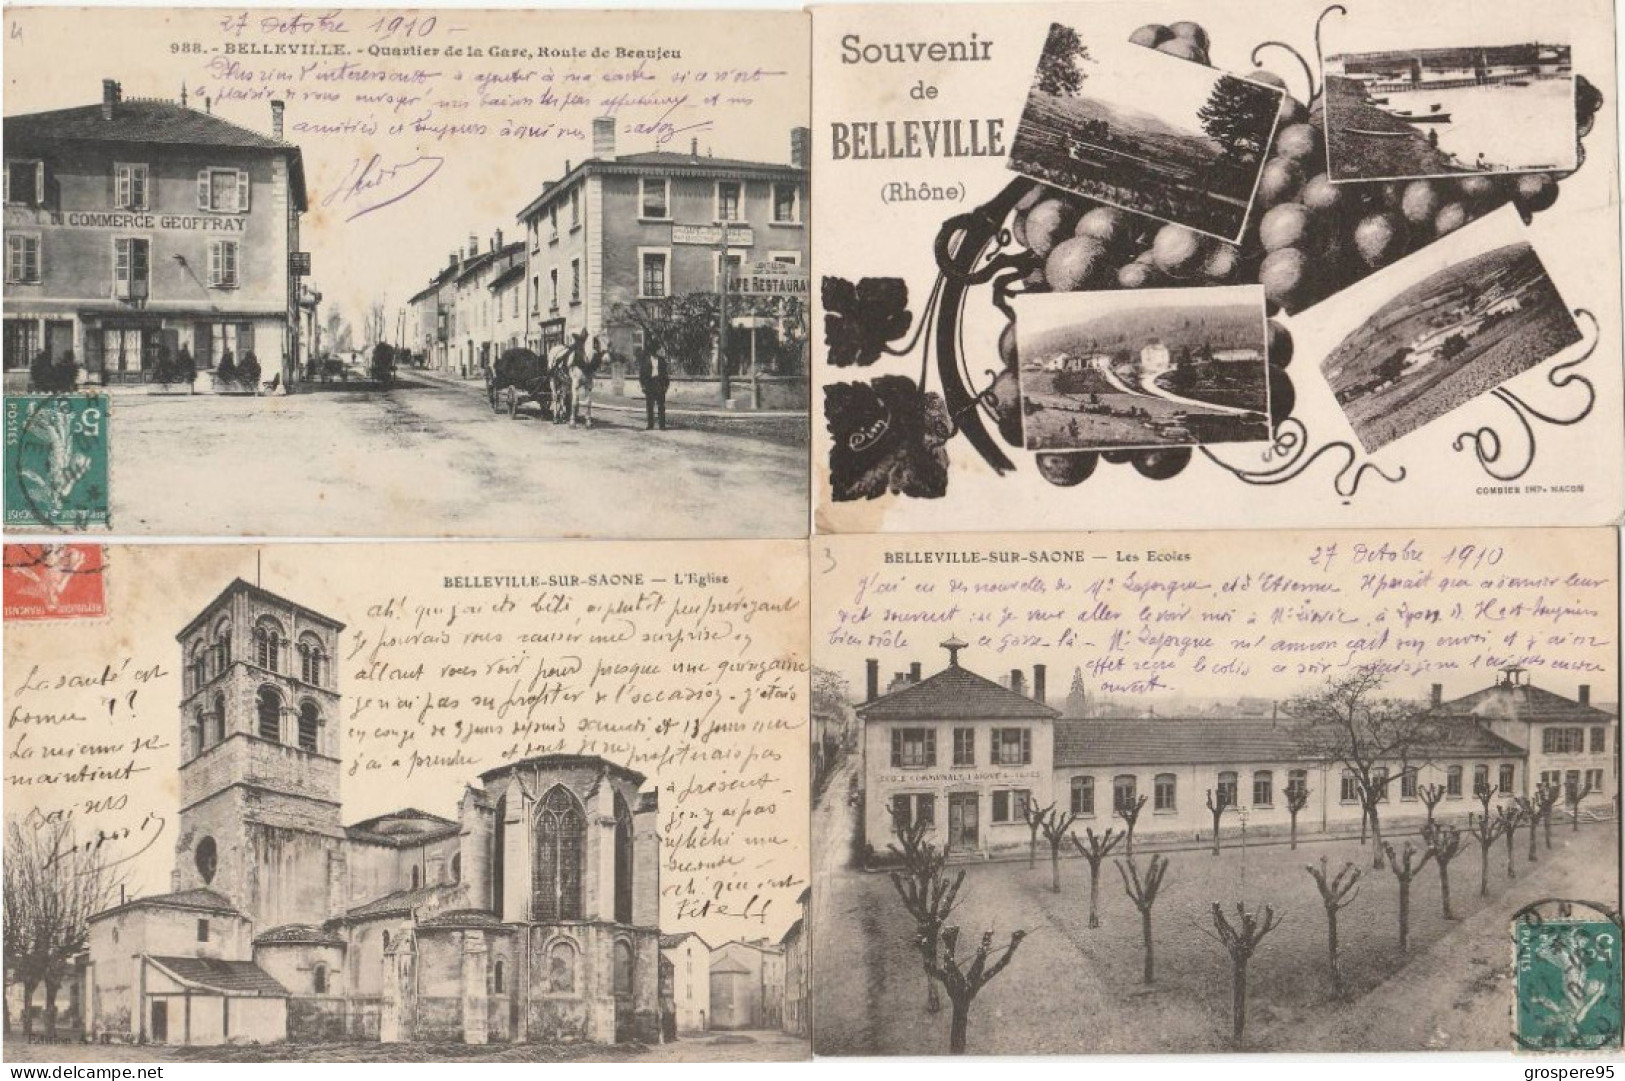 4
27 Octobre 1910 -
988. - BELLEVILLE. - Quartier de la Gare, Route de Beaujeu
Plus rien d'intéressant à ajouter à ma carte si ce n'est
le plaisir de vous envoyer mes baisers les plus affectueux et mes
amitiés et toujours à qui vous savez
COMMERCE GEOFFRAY
CAFE RESTAURA
POSTES
5c
Souvenir
de
BELLEVILLE
(Rhône)
Cim
COMBIER IMP. MACON
BELLEVILLE-SUR-SAONE — L'Eglise
ah! que j'ai été bête, ou plutôt peu prévoyant
Je pouvais vous causer une surprise en
allant vous voir pour presque une quinzaine
je n'ai pas su profiter de l'occasion - j'étais
en congé de 3 jours depuis samedi et 13 jours
j'ai à prendre et dont je ne profiterais pas
à présent -
je n'y ai pas
réfléchi une
seconde -
ah! que c'est
bête !!
La santé est
bonne ??
La mienne se
maintient
Baisers
Edition
3
BELLEVILLE-SUR-SAONE — Les Ecoles
27 Octobre 1910
J'ai eu des nouvelles de Mr Laforgue, et d'Etienne. Il parait que ce dernier leur
dit souvent : je veux aller le voir moi à Mr à Lyon. Il est toujours
bien drôle ce gosse-là - Mr Laforgue m'annonçait son envoi, et j'ai en
effet reçu le colis ce soir mais je ne l'ai pas encore
ouvert.
ECOLE COMMUNALE LAIQUE
5c
POSTES
www.delcampe.net
grospere95